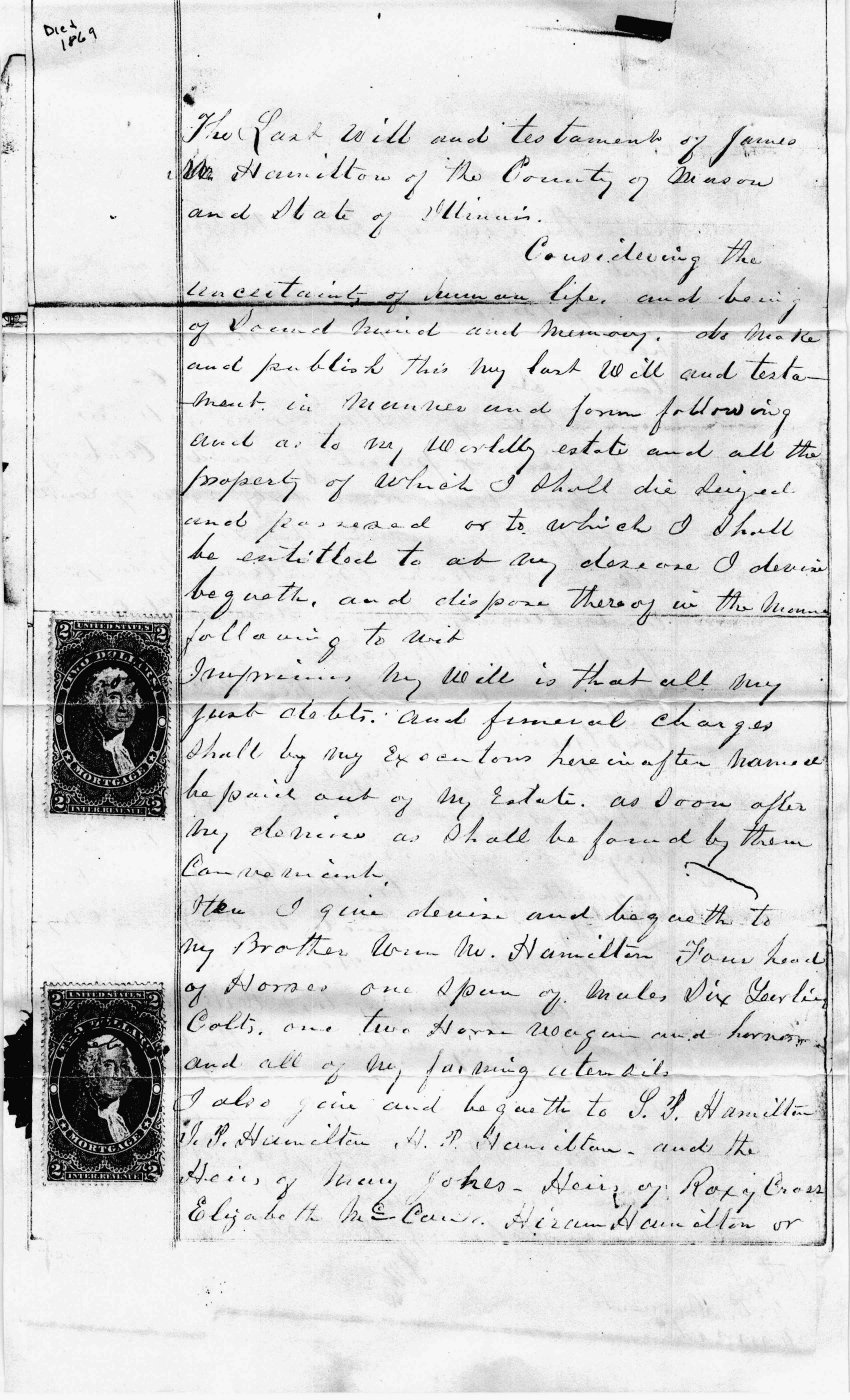 Died
1869
The Last Will and testament of James
M. Hamilton of the County of Mason
and State of Illinois.
Considering the
uncertainty of human life, and being
of Sound mind and memory. do make
and publish this my last Will and testa-
-ment. in manner and form following
and as to my Worldly estate and all the
property of which I shall die seized
and possesed or to which I shall
be entitled to at my desease I devise
bequeth, and dispose thereof in the manner
following to wit
Imprimis My Will is that all my
just debts. and funeral charges
shall by my Executors herein after named
be paid out of my Estate. as soon after
my demise as shall be found by them
Convenient.
Item I give devise and bequeth to
my Brother Wm M. Hamilton Four head
of Horses one Span of Mules Six Yerling
Colts, one two Horse Wagon and harness
and all of my farming utensils
I also give and bequeth to S. P. Hamilton
J. P. Hamilton H. P. Hamilton - and the
Heirs of Mary Jones - Heirs of Roxy Cross
Elizabeth Hiram Hamilton or
2 UNITED STATES 2
TWO DOLLARS
MORTGAGE
2 INTER. REVENUE 2
2 UNITED STATES 2
TWO DOLLARS
MORTGAGE
2 INTER. REVENUE 2